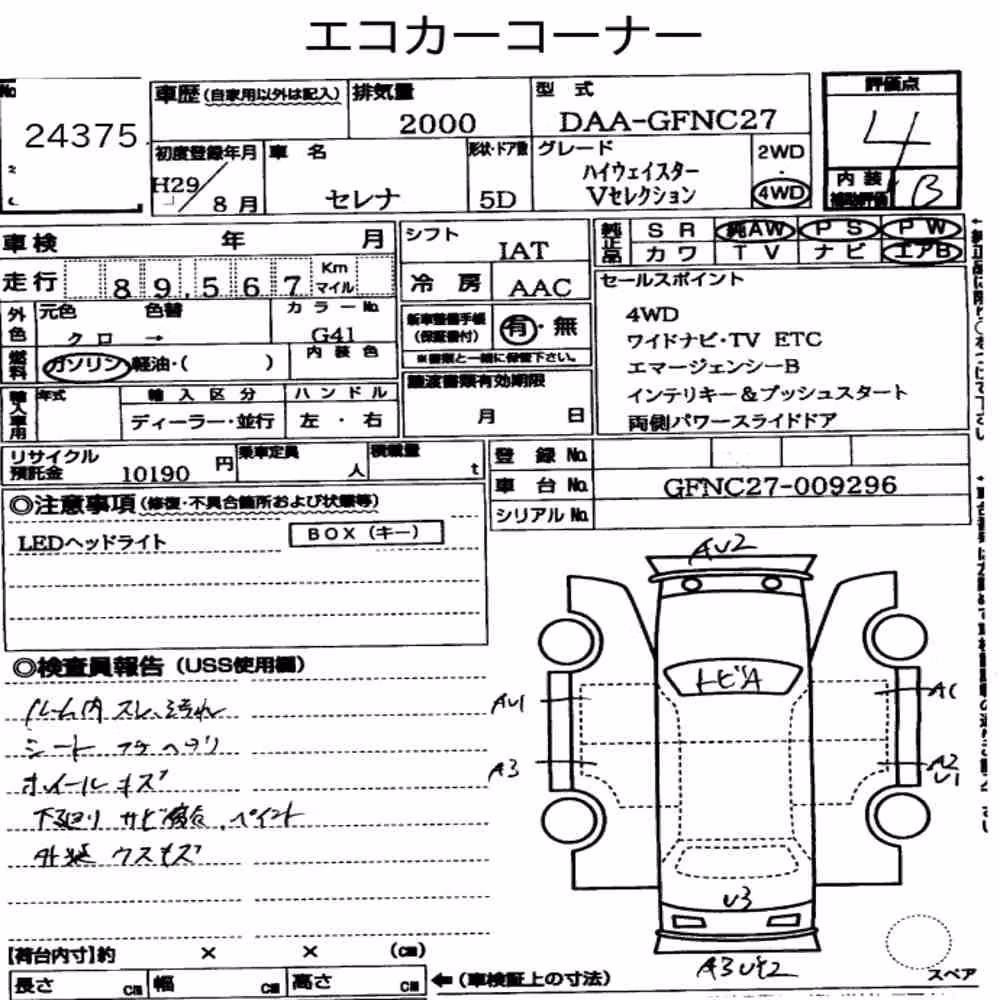 エコカーコーナー
No
24375
車歴 (自家用以外は記入)
排気量
2000
型式
DAA-GFNC27
評価点
4
内装
補助評価
B
初度登録年月
H29
8 月
車名
セレナ
形状・ドア数
5D
グレード
ハイウェイスター
Vセレクション
2WD
・
4WD
車検 年 月
シフト
IAT
純正品
SR 純AW PS PW
カワ TV ナビ エアB
走行 89,567 Km マイル
冷房
AAC
セールスポイント
4WD
ワイドナビ・TV ETC
エマージェンシーB
インテリキー&プッシュスタート
両側パワースライドドア
外色
元色 色替
クロ →
カラーNo
G41
新車整備手帳
(保証書付)
有・無
※書類と一緒に保管下さい。
燃料
ガソリン 軽油・( )
内装色
譲渡書類有効期限
月 日
輸入車用
年式
輸入区分
ディーラー・並行
ハンドル
左・右
リサイクル
預託金
10190 円
乗車定員
人
積載量
t
登録No
車台No GFNC27-009296
シリアルNo
◎注意事項 (修復・不具合箇所および状態等)
LEDヘッドライト
BOX (キー)
◎検査員報告 (USS使用欄)
ルーム内 スレ、汚れ
シート コゲ ヘタリ
ホイールキズ
下廻り サビ腐食、ペイント
外装 ウスキズ
AU2
トビA
AU1
A1
A3
A2
U1
U3
A3U2
スペア
【荷台内寸】約 × × (cm)
長さ cm 幅 cm 高さ cm
←(車検証上の寸法)